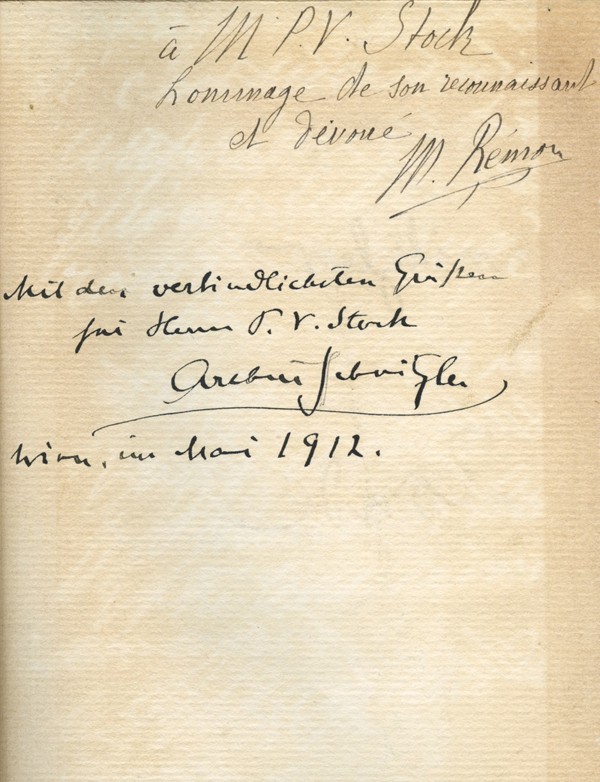 à M P. V. Stock
hommage de son reconnaissant
et dévoué
M. Rémon
Mit den verbindlichsten Grüßen
für Herrn P. V. Stock
Arthur Schnitzler
Wien, im Mai 1912.